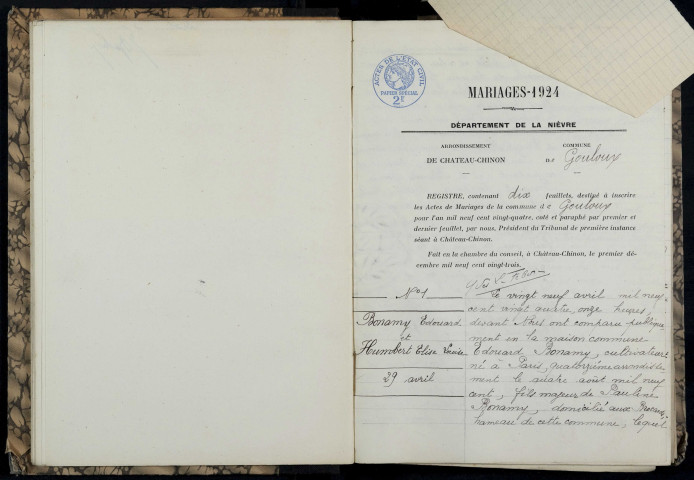 ACTES DE L'ÉTAT CIVIL
PAPIER SPÉCIAL
2F
MARIAGES-1924
DÉPARTEMENT DE LA NIÈVRE
ARRONDISSEMENT
DE CHATEAU-CHINON
COMMUNE
DE Gouloux
REGISTRE, contenant dix feuillets, destiné à inscrire
les Actes de Mariages de la commune de Gouloux
pour l'an mil neuf cent vingt-quatre, coté et paraphé par premier et
dernier feuillet, par nous, Président du Tribunal de première instance
séant à Château-Chinon.
Fait en la chambre du conseil, à Château-Chinon, le premier dé-
cembre mil neuf cent vingt-trois.
N° 1
Bonamy Edouard
et
Humbert Elise Louise
29 avril
Le vingt neuf avril mil neuf
cent vingt quatre, onze heures,
devant Nous ont comparu publique
ment en la maison commune
Edouard Bonamy, cultivateur
né à Paris, quatorzième arrondisse
ment le quatre août mil neuf
cent, fils majeur de Pauline
Bonamy, domicilié aux
hameau de cette commune, lequel